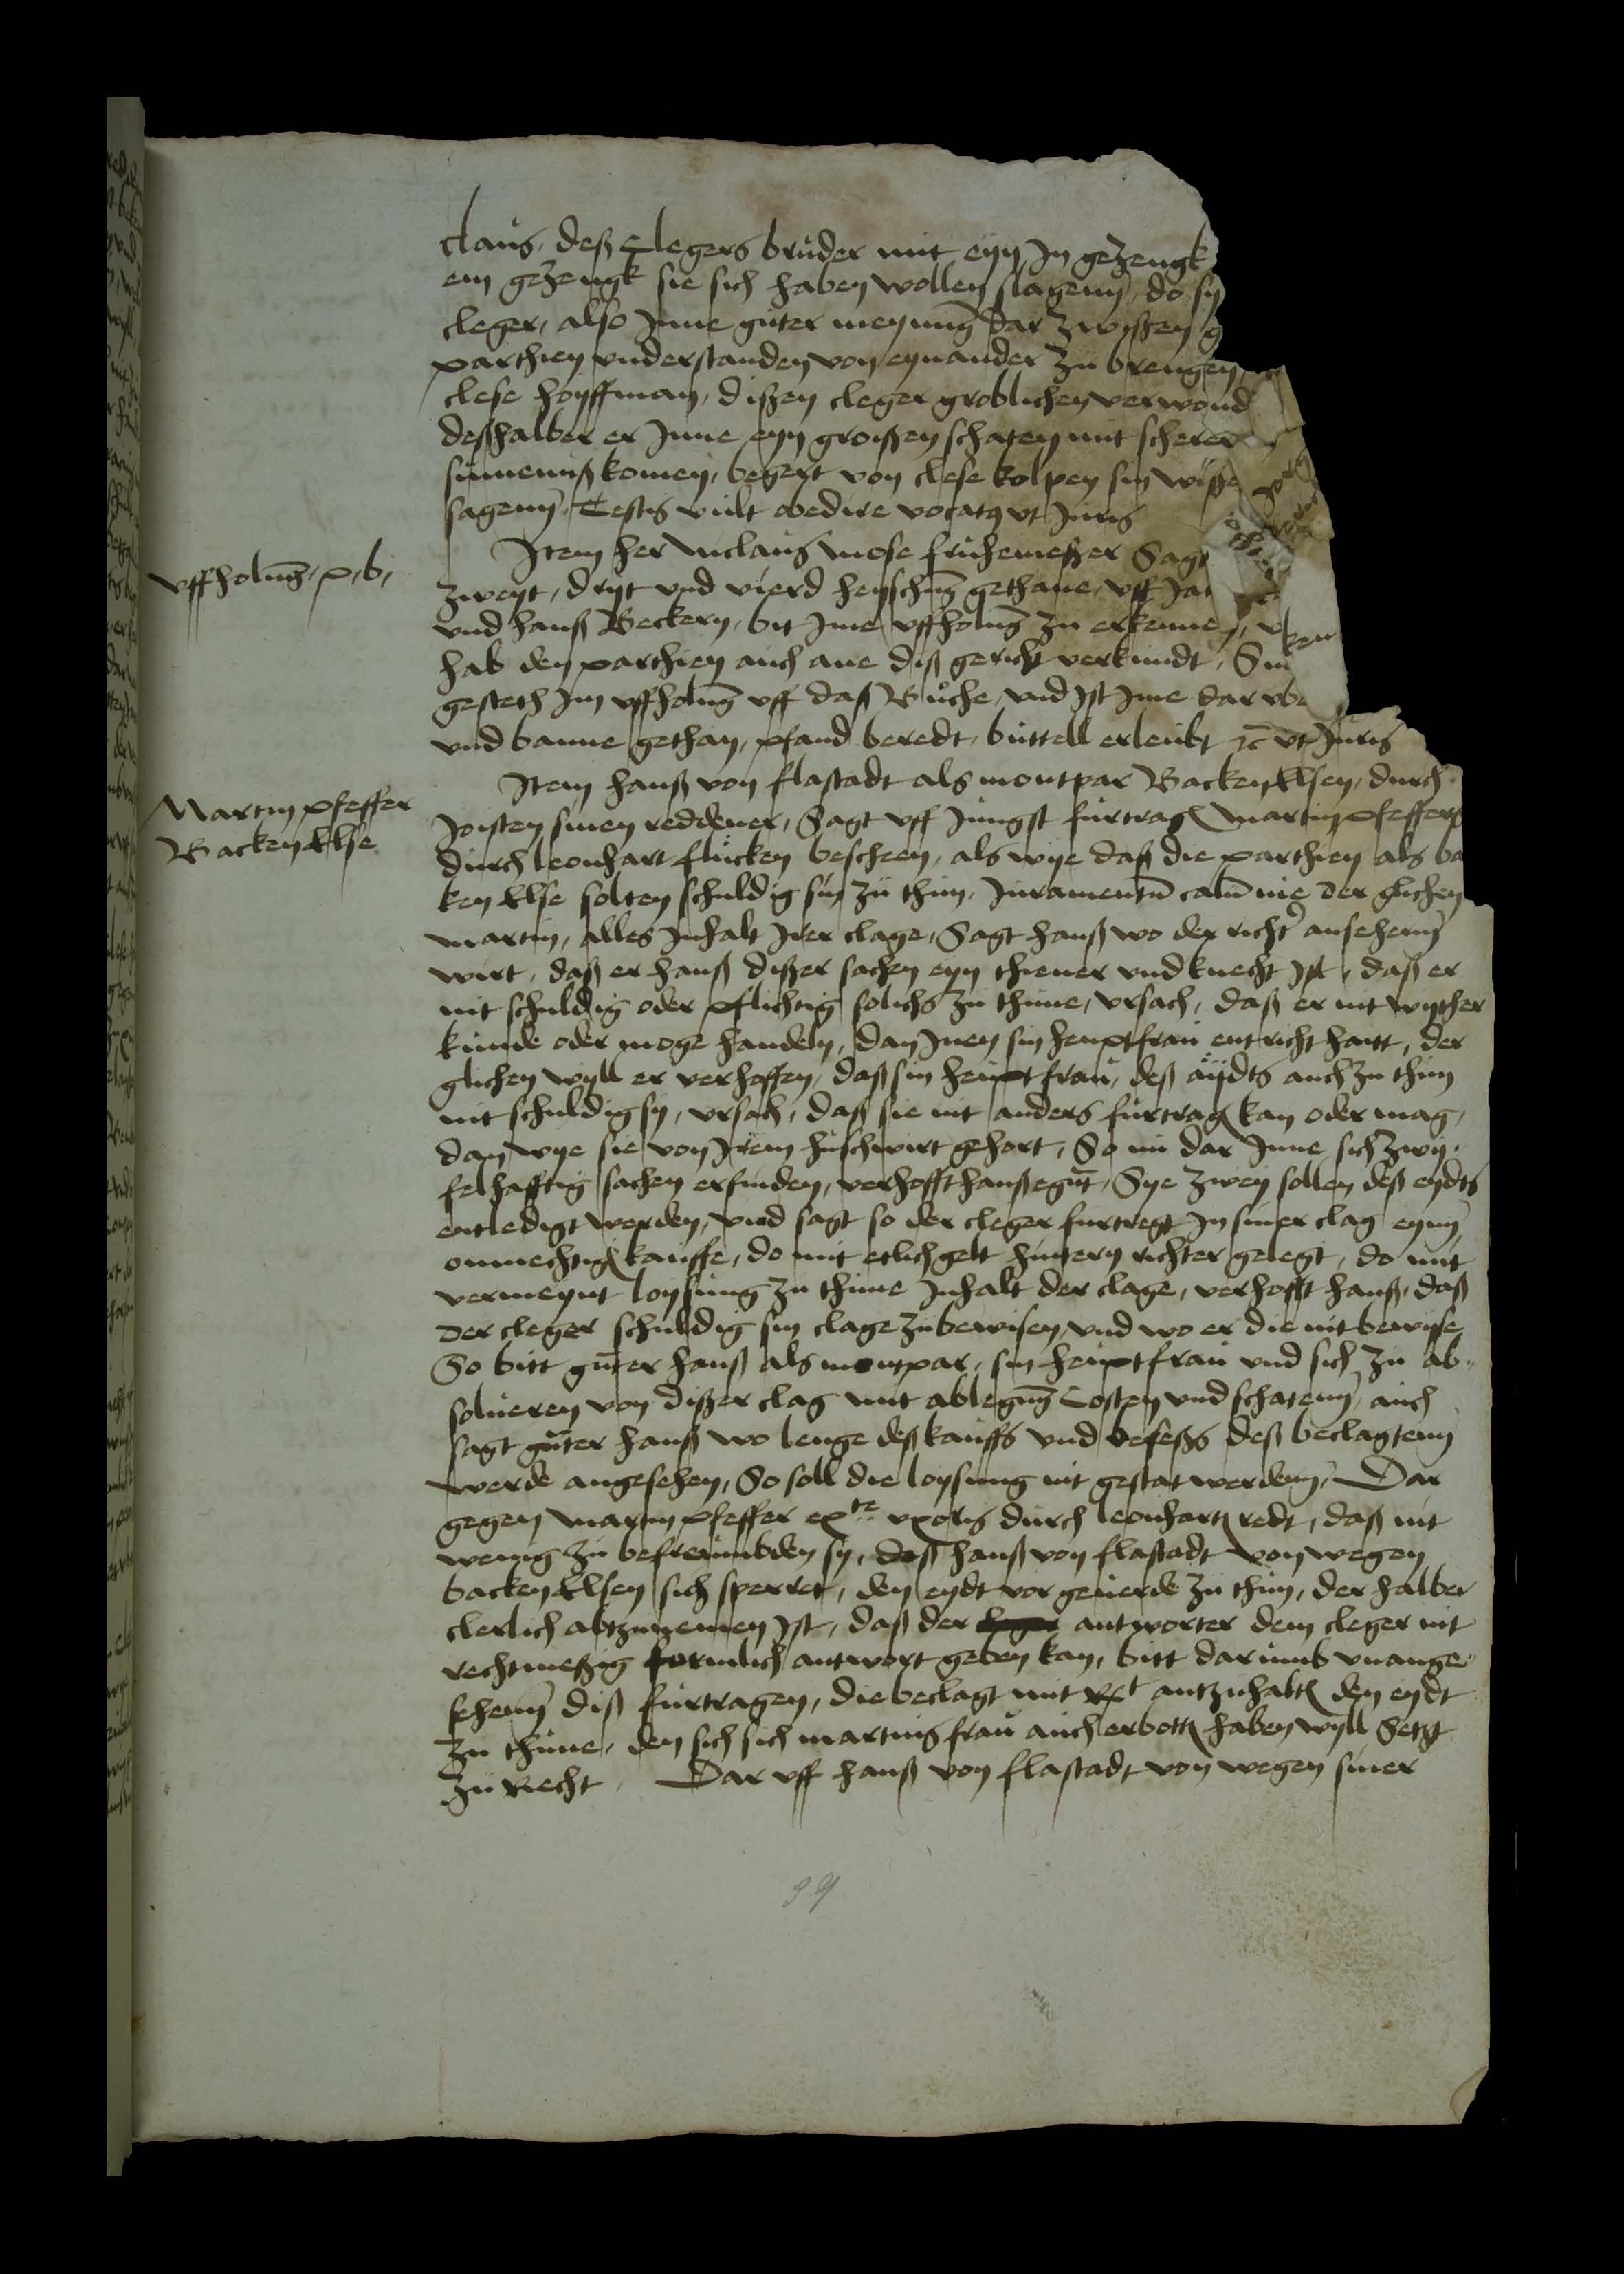 claus, deß Clegers bruder mit eyn In gezengk
ein gezengk sie sich haben wollen slagenn, do sy
cleger, also Inne guter meynung dar zwissen
parthien understanden von eynander zu brengen
clese hoyffman, dißen cleger groblichen verwond
deßhalber er Inne eyn groißen schaten mit scherer
sumeniß komen, begert von clese kolpen sin wisße
sagenn, Testis vult obedire vocatus ut Juris
uffholung, p, b,
Item her niclaus mose fruhemeßer Sagt
zweyt, dryt und vierd heyschung gethane, uff
und hanß Beckern, bit Ime uffholung zu erkennen,
hab den parthien auch ane diß gericht verkundt, Sin
gesteth Im uffholung uff daß Buche, und Ist Ime dar
und banne gethan, pfand beredt, buttell erleubt ꝛc ut Juris
Martin pfeffer
Backen Else
Item hanß von flastadt als montpar Backen Elsen, durch
Joisten sinen reddener, Sagt uff Jungst furtrag martin pfeffers
durch leonhart flucken bescheen, als wye daß die parthien als ba
ken Else solten schuldig sin zu thun, Juramentum calumnie der glichen
martin, alles Inhalt Irer clage, Sagt hanß wo der richter ansehenn
wirt, daß er hanß dißer sachen eyn thiener und knecht Ist, daß er
nit schuldig oder pflichtig solichs zu thune, ursach, daß er nit wyther
kunde oder moge handeln, dan Inen sin heuptfrau entricht hatt, der
glichen wyll er verhoffen, daß sin heuptfrau, deß aydts auch zu thun
nit schuldig sy, ursach, daß sie nit anders furtrag kan oder mag,
dan wye sie von Irem hußwirt gehort, So nu dar Inne sich zwy,
felhafftig sachen erfinden, verhofft hanß egut, Sye zwey sollen deß eydts
entledigt werden, und sagt so der cleger furtregt In siner clag eynn
onmechtig kauffe, do mit etlich gelt hintern richter gelegt, do mit
vermeynt loysung zu thune Inhalt der clage, verhofft hanß, daß
der cleger schuldig sin clage zubewisen, und wo er die nit bewisse
So bitt guter hanß als montpar, sin heuptfrau und sich zu ab,
solueren von dißer clag mit ablegung Costen und schatenn, auch
sagt guter hanß wo lenge deß kauffs und beseßs deß beclagtenn
werde angesehen, So soll die loysung nit gestat werdenn, Dar
gegen martin pfeffer exte uxoris durch leonhart redt, daß nit
wenig zu befreumbden sy, daß hanß von flastadt von wegen
backen Elsen sich sperret, den eydt vor geuerde zu thun, der halber
clerlich abtzunemen Ist, daß der antworter dem cleger nit
rechtmeßig formlich antwort geben kan, bitt darumb unange,
sehenn diß furtragen, die beclagt mit Rpt antzuhaltt den eydt
zu thune, den sich sich martins frau auch erbott haben wyll Setzt
zu Recht, Dar uff hanß von flastadt von wegen siner
39